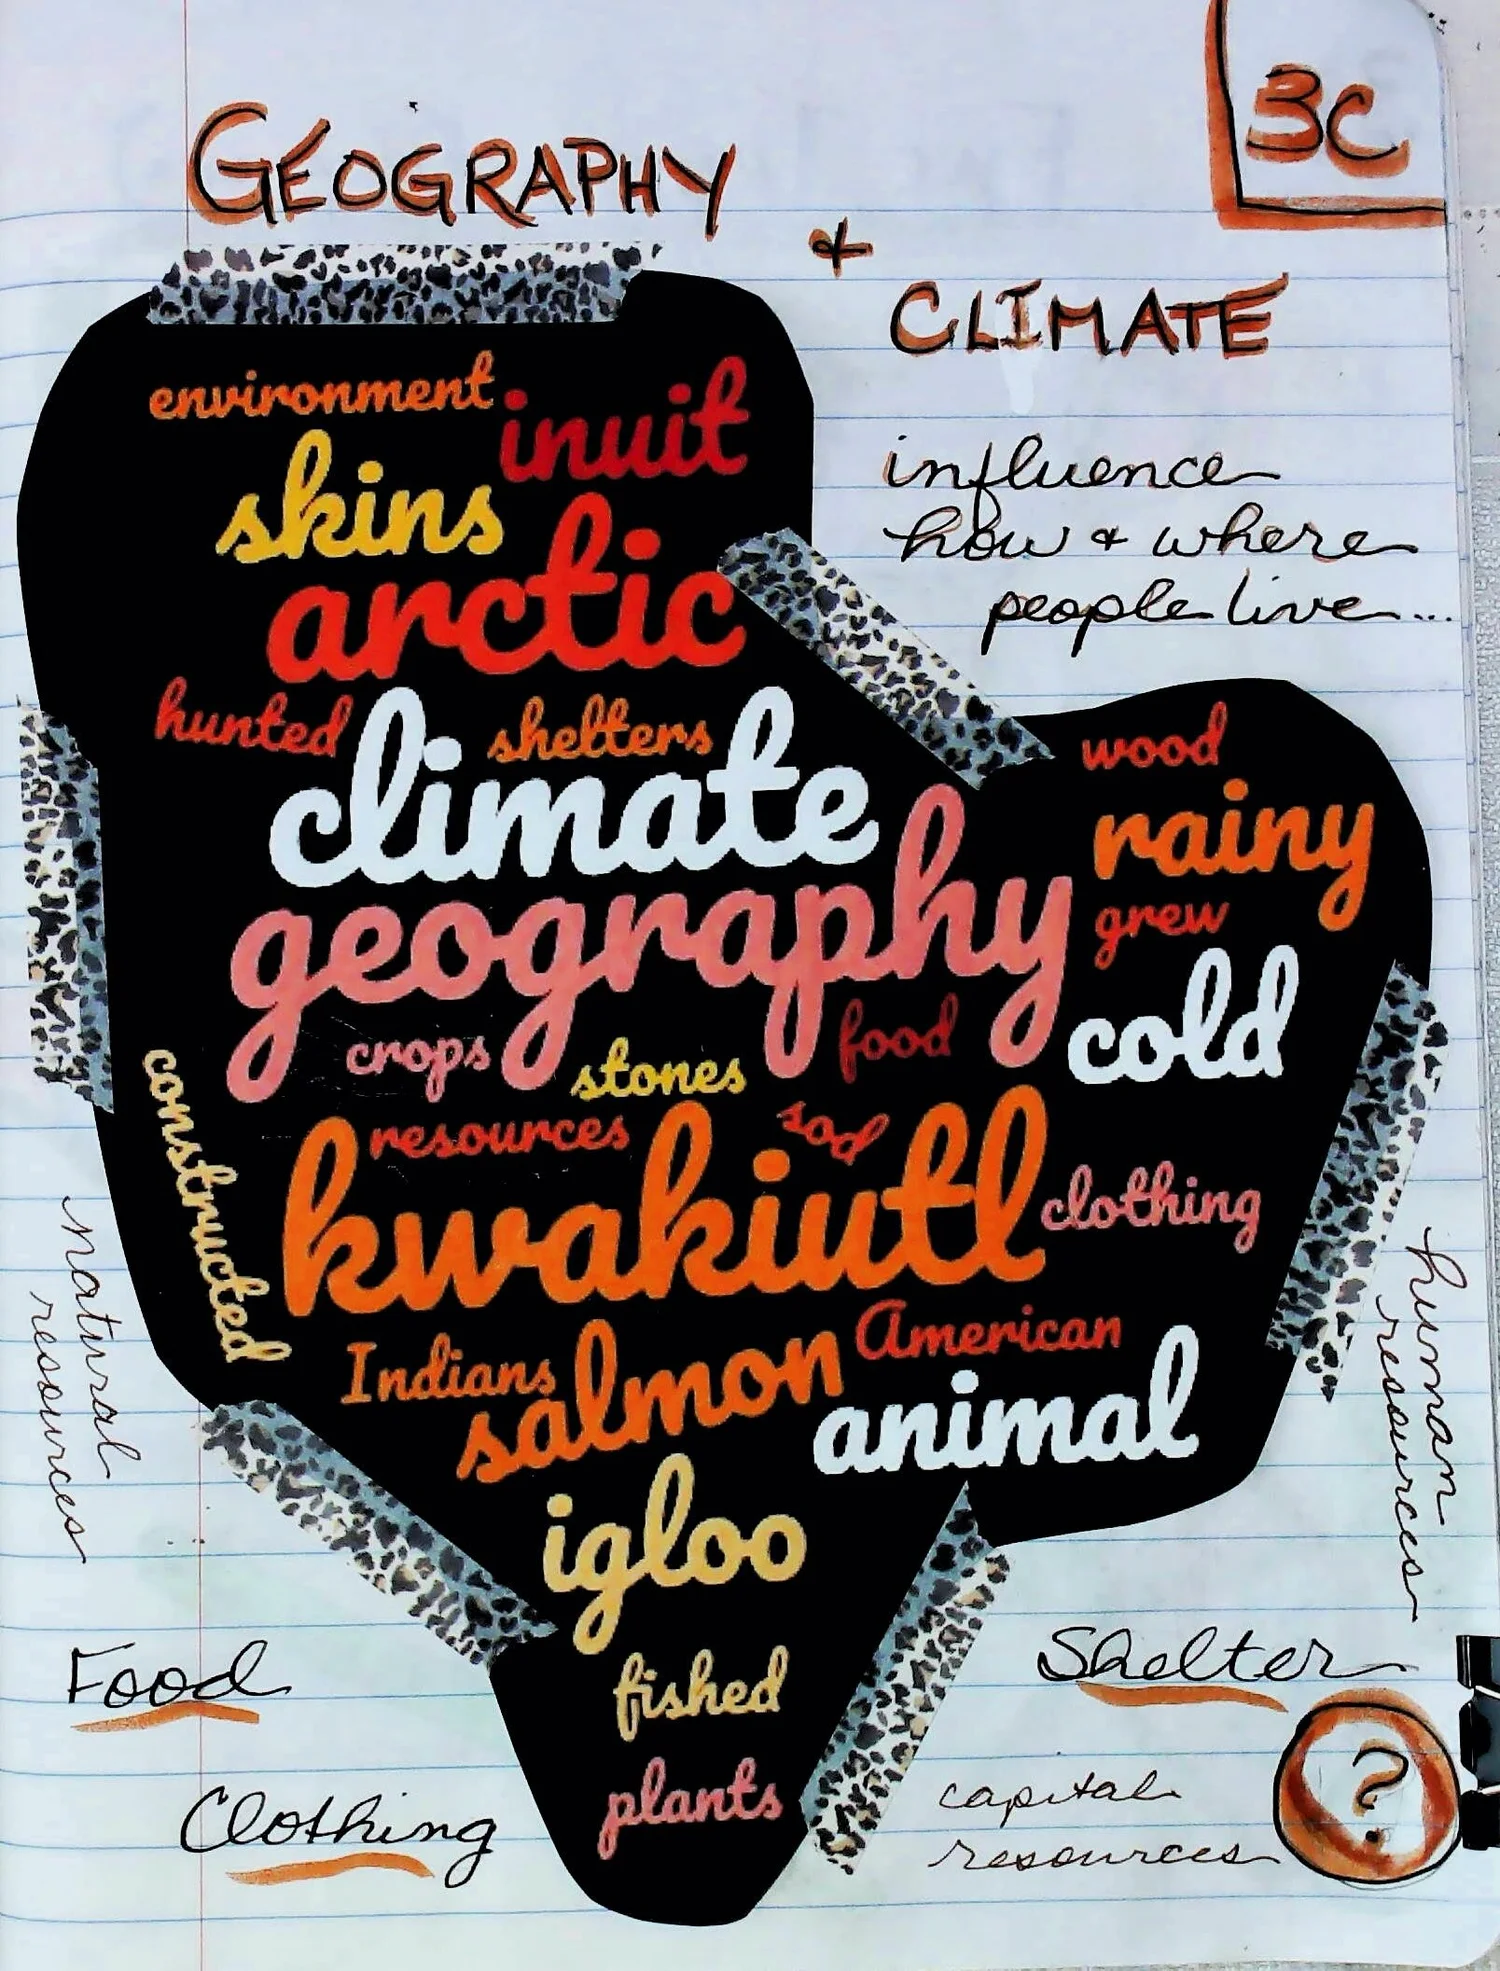 3C
GEOGRAPHY
&
CLIMATE
influence
how & where
people live...
environment
inuit
skins
arctic
hunted
shelters
climate
wood
rainy
geography
grew
cold
crops
stones
food
constructed
resources
sod
kwakiutl
clothing
Indians
American
salmon
animal
igloo
fished
plants
natural
resources
human
resources
Food
Shelter
Clothing
capital
resources
?